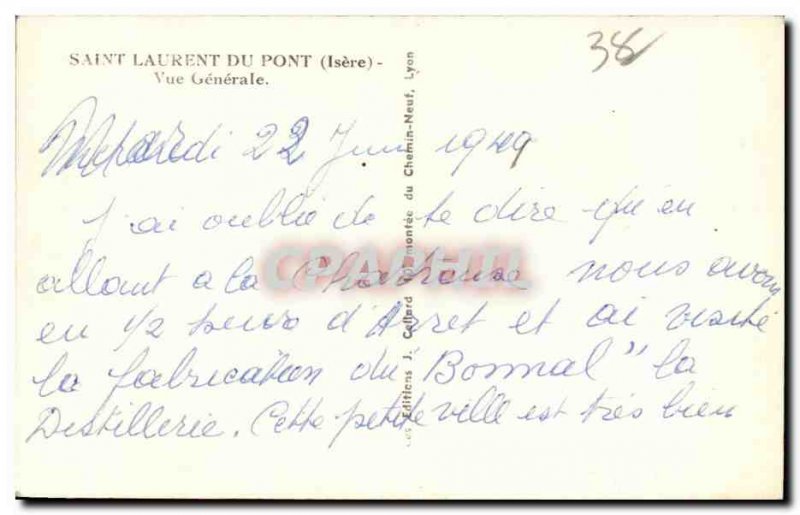 38
SAINT LAURENT DU PONT (Isère) -
Vue Générale.
Les Editions J. Cellard montée du Chemin-Neuf, Lyon
Mercredi 22 Juin 1949
J'ai oublié de te dire qu'en
allant a la Chartreuse nous avons
eu 1/2 heure d'Arret et ai visité
la fabrication du Bonnal" la
Distillerie. Cette petite ville est très bien
CPAPHIL